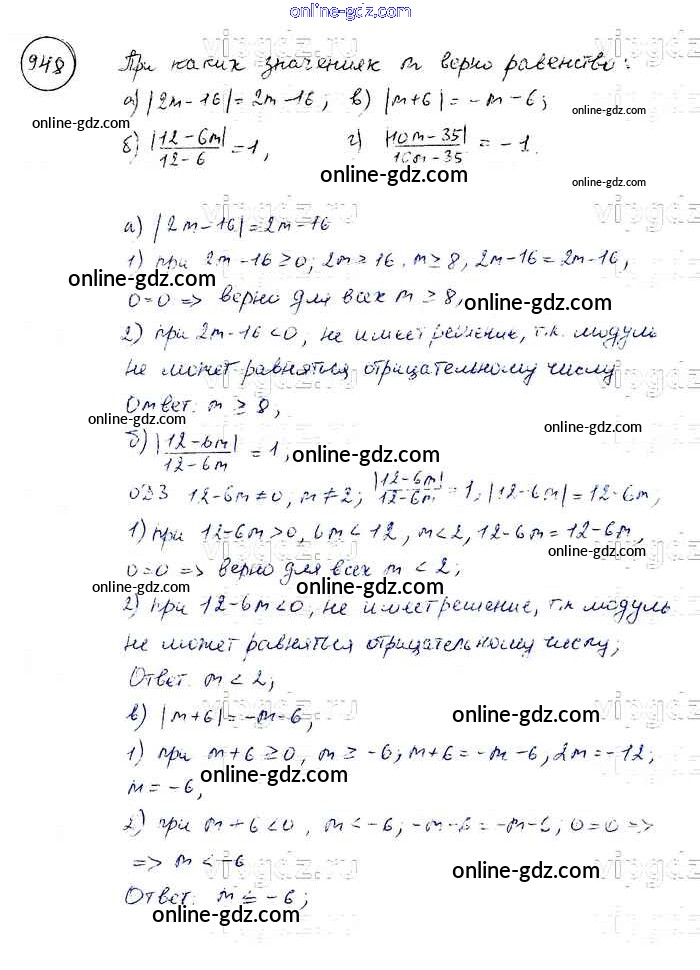 online-gdz.com
948
При каких значениях m верно равенство:
а) |2m-16| = 2m-16; в) |m+6| = -m-6;
online-gdz.com
online-gdz.com
б) |12-6m|/12-6 = 1, г) |10m-35|/10m-35 = -1.
online-gdz.com
online-gdz.com
а) |2m-16| = 2m-16
1) при 2m-16 ≥ 0; 2m ≥ 16, m ≥ 8, 2m-16 = 2m-16,
online-gdz.com
0=0 => верно для всех m ≥ 8,
online-gdz.com
2) при 2m-16 < 0, не имеет решение, т.к. модуль
не может равняться отрицательному числу
Ответ: m ≥ 8,
online-gdz.com
online-gdz.com
б) |12-6m|/12-6m = 1,
online-gdz.com
ОДЗ 12-6m ≠ 0, m ≠ 2; |12-6m|/12-6m = 1; |12-6m| = 12-6m,
1) при 12-6m > 0, 6m < 12, m < 2, 12-6m = 12-6m,
online-gdz.com
0=0 => верно для всех m < 2;
online-gdz.com
online-gdz.com
2) при 12-6m < 0, не имеет решение, т.к модуль
не может равняться отрицательному числу;
Ответ. m < 2;
в) |m+6| = -m-6;
online-gdz.com
1) при m+6 ≥ 0, m ≥ -6; m+6 = -m-6, 2m = -12;
online-gdz.com
m = -6,
2) при m+6 < 0, m < -6; -m-6 = -m-6; 0=0 =>
=> m < -6
online-gdz.com
Ответ: m ≤ -6;
online-gdz.com